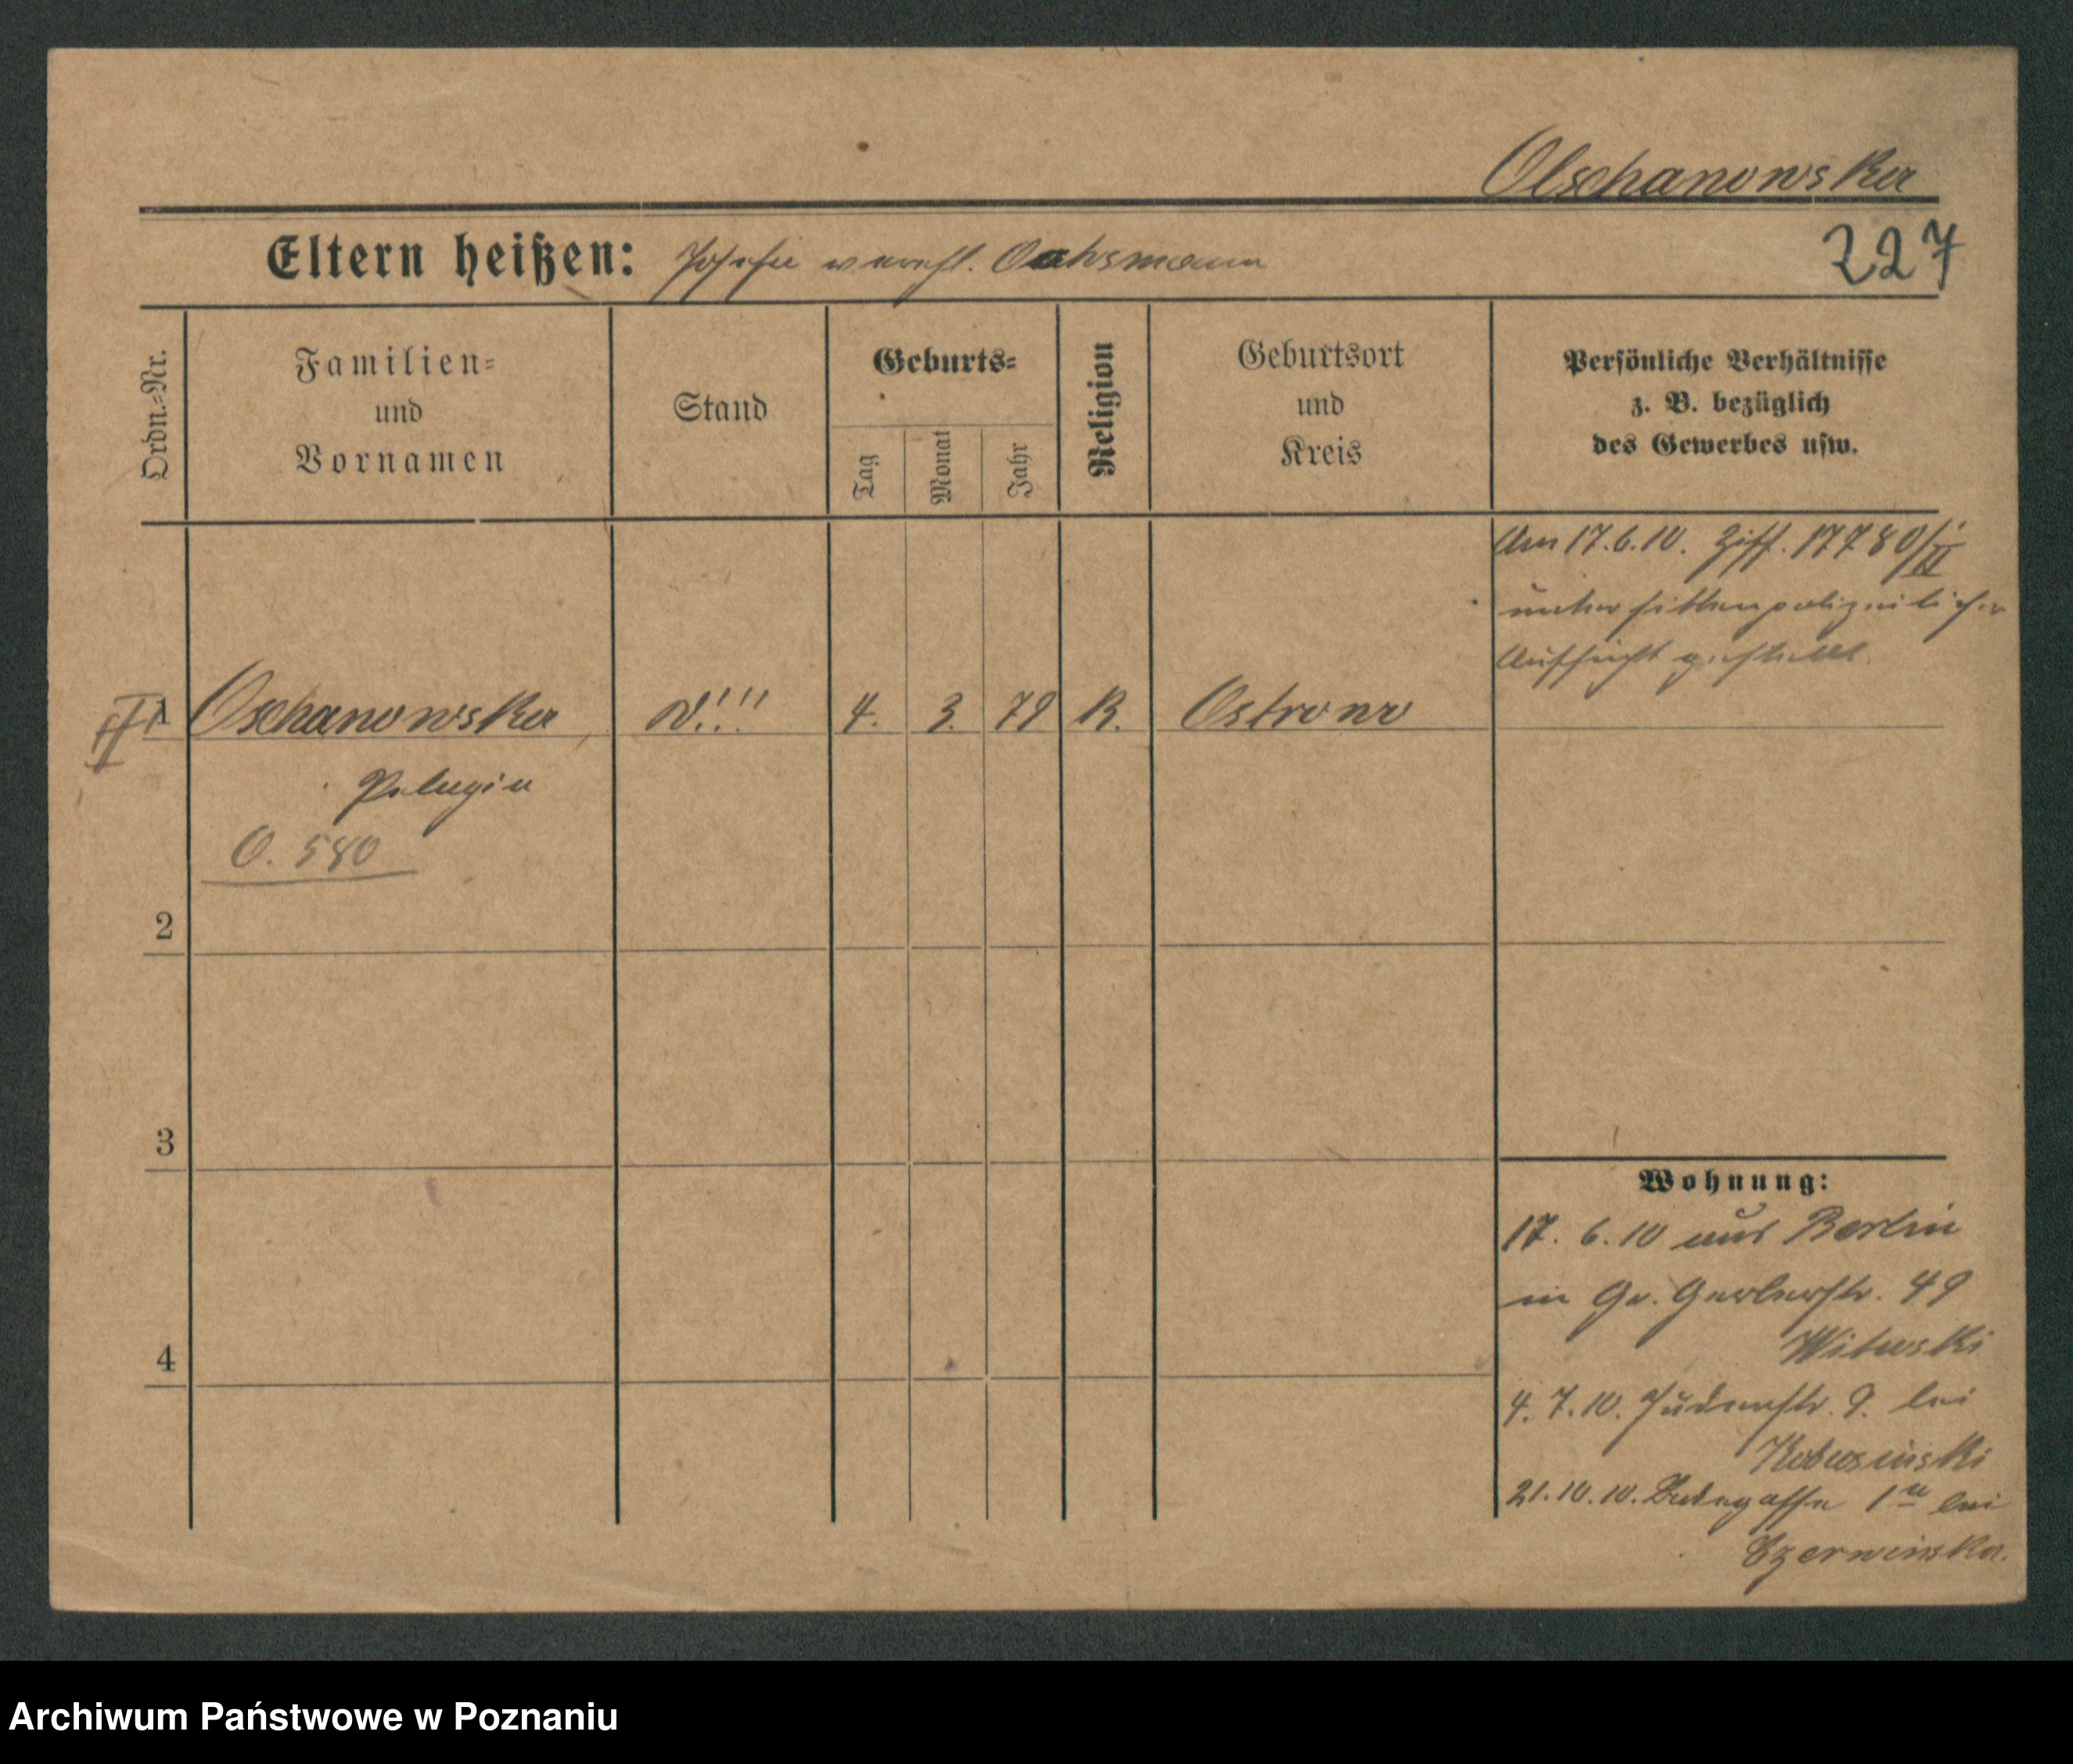 Olschanowska
Eltern heißen: Josefa verehl. Ochsmann
227
Ordn.=Nr.
Familien=
und
Vornamen
Stand
Geburts=
Tag
Monat
Jahr
Religion
Geburtsort
und
Kreis
Persönliche Verhältnisse
z. B. bezüglich
des Gewerbes usw.
Am 17.6.10. Ziff. 17780/II
unter sittenpolizeilicher
Aufsicht gestellt.
1 Oschanowska 4. 3. 79 K. Ostrowo
Pelagia
O. 580
2
3
4
Wohnung:
17. 6. 10 aus Berlin
in Gr. Gerberstr. 49
Witwski
4. 7. 10. Judenstr. 9. bei
21. 10. 10. 1a bei
Czerwinska.
Archiwum Państwowe w Poznaniu